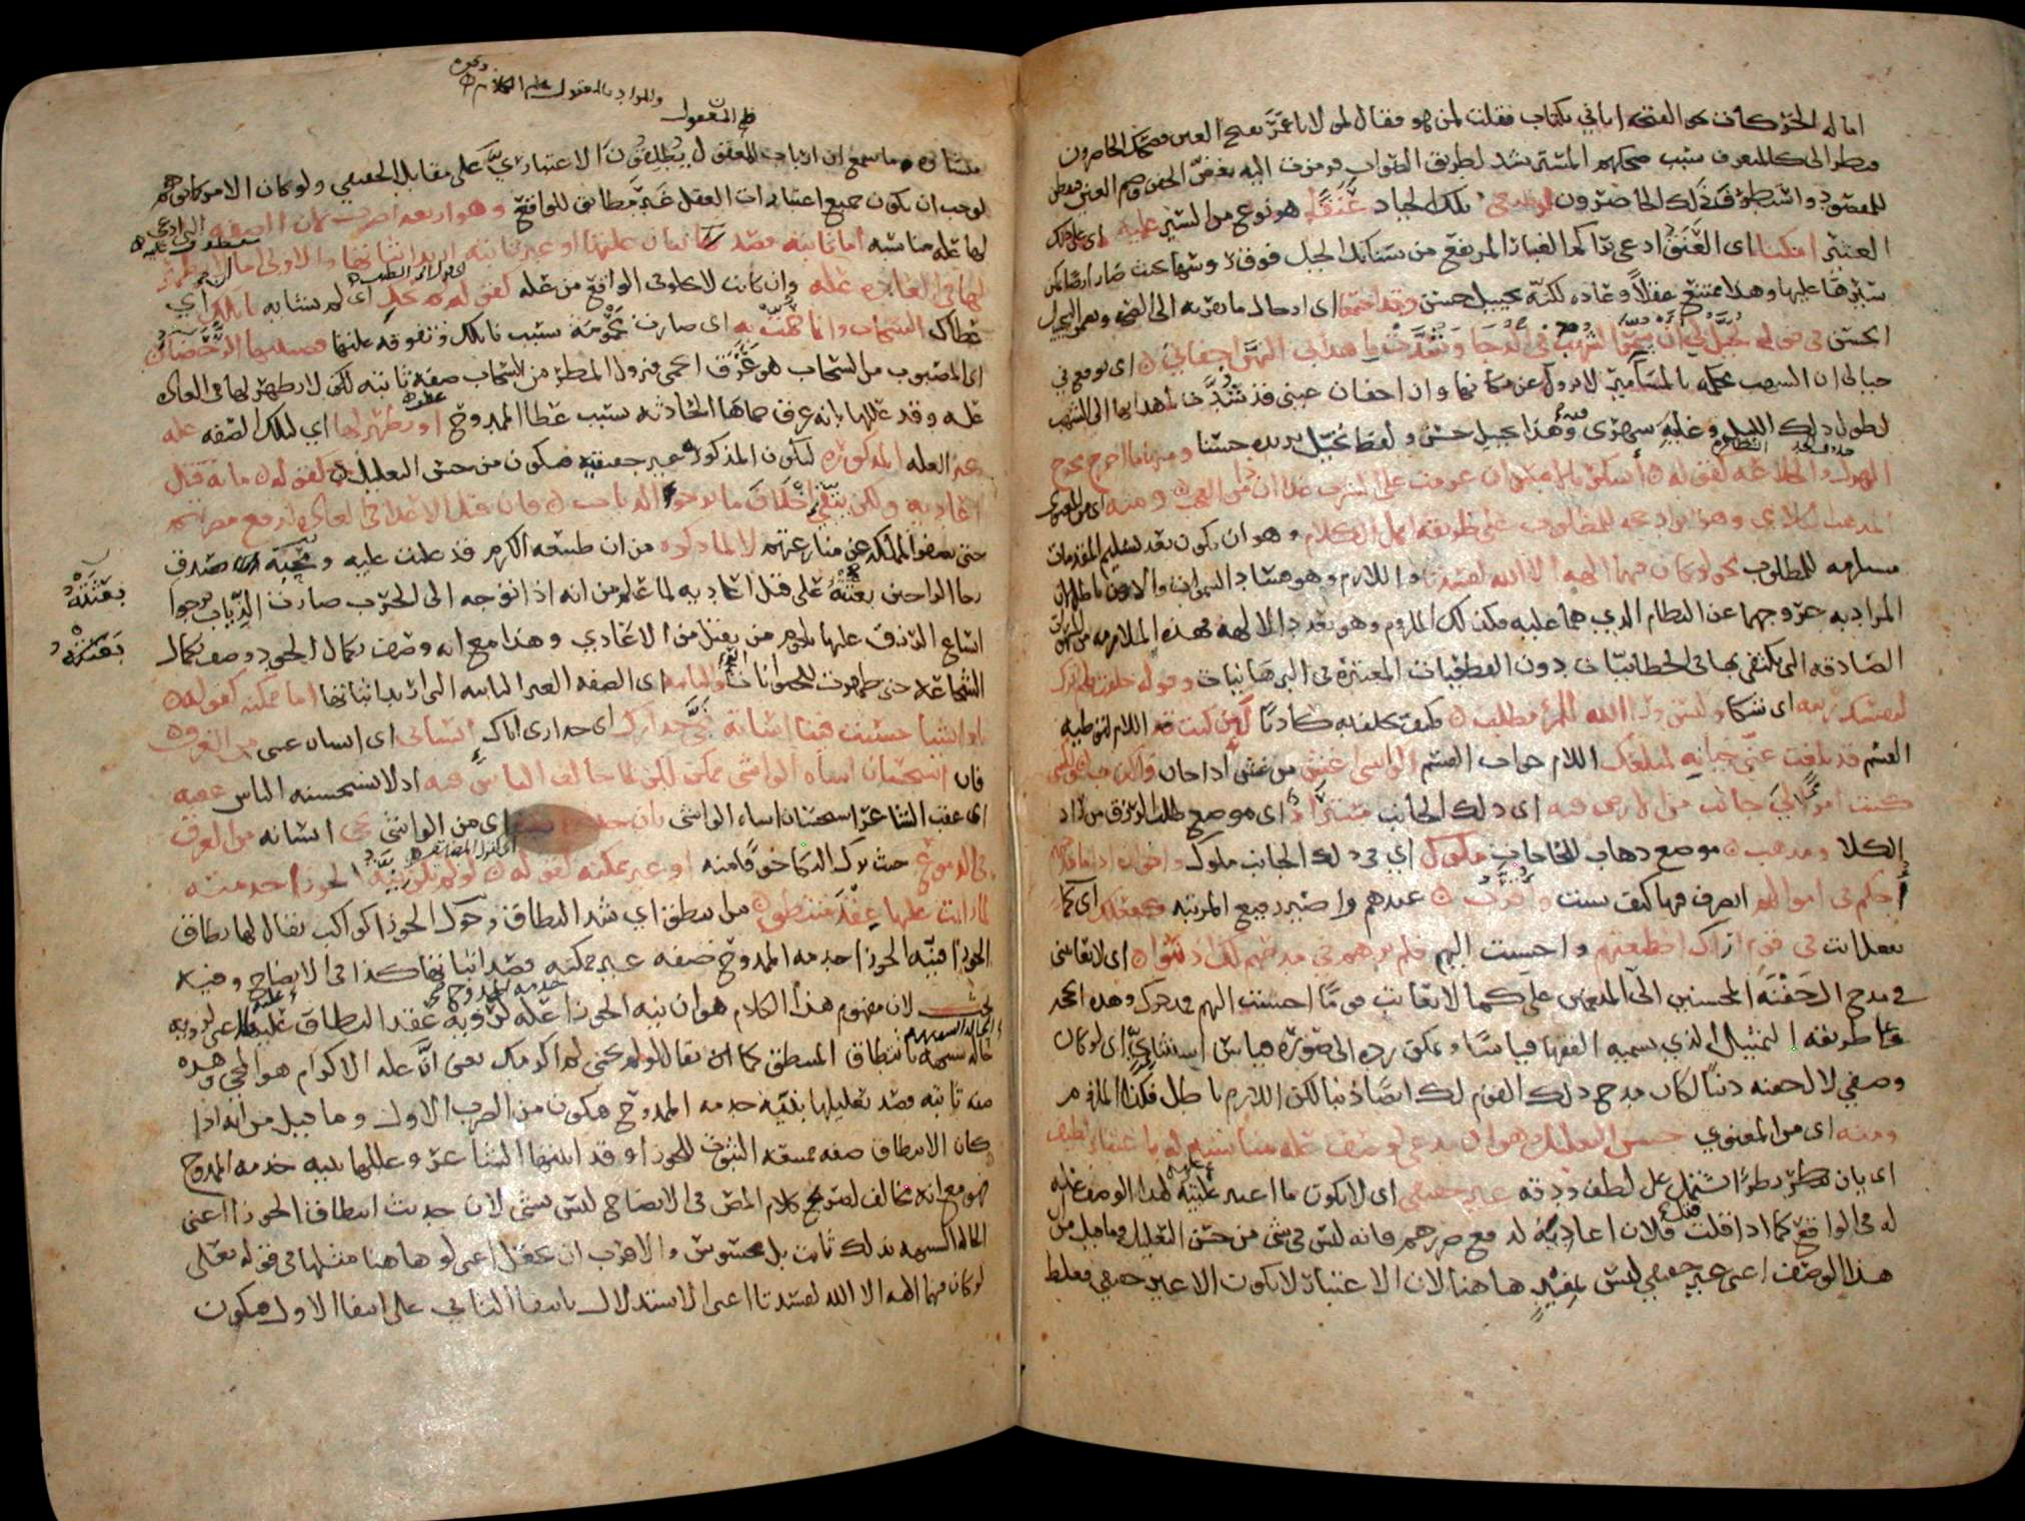 اماله الحر كات نحو الفتحه اتاني بكتاب فقلت لمن هو فقال لمولانا عمر بفتح العين فضحك الحاضرون
فنظر الي كالمتعرف سبب ضحكهم المسترشد لطريق الصواب فرمزت اليه بغض الجفن وضم العين ففطن
للمقصود واستظرف ذلك الحاضرون لو تبتغي تلك الجياد عنقا هو نوع من السير عليه اي على ذلك
العثير لامكنا اي العنق ادعى تراكم الغبار المرتفع من سنابك الخيل فوق رؤسها بحيث صار ارضا يمكن
سيرها عليها وهذا ممتنع عقلا وعاده لكنه تخييل حسن وقد اجتمعا اي ادخال ما يقربه الى الصحه وتضمن التخييل
الحسن في قوله يخيل لي ان سمر الشهب في الدجا وشدت باهدابي اليهن اجفاني اي يوقع في
خيالي ان الشهب محكمه بالمسامير لا تزول عن مكانها وان اجفان عيني قد شدت باهدابها الى الشهب
لطول ذلك الليل وغايه سهري فيه وهذا تخييل حسن ولفظ يخيل يزيده حسنا ومنها ما اخرج مخرج
الهزل والخلاعه كقوله اسكر بالامس ان عزمت على الشرب غدا ان ذا من العجب ومنه اي من المعنوي
المذهب الكلامي وهو ايراد حجه للمطلوب على طريقه اهل الكلام وهو ان تكون بعد تسليم المقدمات
مستلزمه للمطلوب نحو لو كان فيهما الهه الا الله لفسدتا واللازم وهو فساد السموات والارض باطل لان
المراد به خروجهما عن النظام الذي هما عليه فكذلك الملزوم وهو تعدد الالهه وهذه الملازمه من المشهورات
الصادقه التي يكتفى بها في الخطابيات دون القطعيات المعتبره في البرهانيات وقوله حلفت فلم اترك
لنفسك ريبه اي شكا وليس وراء الله للمرء مطلب فكيف يحلف به كاذبا لئن كنت اللام لتوطيه
القسم قد بلغت عني خيانه لمبلغك اللام جواب القسم الواشي اغش من غش اذا خان واكذب ولكنني
كنت امرءا لي جانب من الارض فيه اي ذلك الجانب مستراد اي موضع طلب الرزق من راد
الكلا ومذهب موضع ذهاب للحاجات ملوك اي في ذلك الجانب ملوك واخوان اذا ما مدحتهم
احكم في اموالهم اتصرف فيها كيف شئت واقرب عندهم واصير رفيع المرتبه كفعلك اي كما
تفعل انت في قوم اراك اصطنعتهم واحسنت اليهم فلم ترهم في مدحهم لك اذنبوا اي لا تعاتبني
في مدح ال جفنه المحسنين الي المنعمين علي كما لا تعاتب قوما احسنت اليهم فمدحوك وهذه الحجه
على طريقه التمثيل الذي يسميه الفقهاء قياسا ويمكن رده الى صوره قياس استثنائي اي لو كان
مدحي لال جفنه ذنبا لكان مدح ذلك القوم لك ايضا ذنبا لكن اللازم باطل فكذا الملزوم
ومنه اي من المعنوي حسن التعليل وهو ان يدعى لوصف عله مناسبه له باعتبار لطيف
اي بان ينظر نظرا يشتمل على لطف ودقه غير حقيقي اي لا يكون ما اعتبر عله لهذا الوصف عله
له في الواقع كما اذا قلت قتل فلان اعاديه لدفع ضررهم فانه ليس في شي من حسن التعليل وما قيل من
هذا الوصف اعني غير حقيقي ليس بمفيد هاهنا لان الاعتبار لا يكون الا غير حقيقي فغلط
ونحوه
والمراد بالمعقول علم الكلام
علم المعقول
منشاه ما سمع ان ارباب المعقول يطلقون الاعتباري على مقابل الحقيقي ولو كان الامر كما توهم
لوجب ان يكون جميع اعتبارات العقل غير مطابق للواقع وهو اربعه اضرب لان الصفه التي ادعي
لها عله مناسبه اما ثابته قصد بيان علتها او غير ثابته اريد اثباتها والاولى اما ان لا يظهر
لها في العاده عله وان كانت لا تخلو في الواقع من عله كقوله لم يحك اي لم يشابه نائلك اي
عطاك السحاب وانما حمت به اي صارت محمومه بسبب نائلك وتفوقه عليها فصبيبها الرحضاء
اي المصبوب من السحاب هو عرق الحمى فنزول المطر من السحاب صفه ثابته لكن لا يظهر لها في العاده
عله وقد عللها بانه عرق حماها الحادثه بسبب عطا الممدوح او يظهر لها اي لتلك الصفه عله
غير العله المذكوره لتكون المذكوره غير حقيقيه فيكون من حسن التعليل كقوله ما به قتل
اعاديه ولكن يتقي اخلاف ما ترجو الذياب فان قتل الاعداء في العاده لدفع مضرتهم
حتى يصفو الملك عن منازعتهم لا لما ذكره من ان طبيعه الكرم قد غلبت عليه ومحبه صدق
رجا الراجين بعثته على قتل اعاديه لما علم من انه اذا توجه الى الحرب صارت الذياب ترجوا
بعثته
اتساع الرزق عليها بلحوم من يقتل من الاعادي وهذا مع انه وصف بكمال الجود وصف بكمال
الشجاعه حتى ظهرت للحيوانات والثانيه اي الصفه الغير الثابته التي اريد اثباتها اما ممكنه كقوله
يا واشيا حسنت فينا اساته نجى حذارك اي حذاري اياك انساني اي انسان عيني من الغرق
فان استحسان اساه الواشي ممكن لكن لما خالف الناس فيه اذ لا يستحسنه الناس عقبه
اي عقب الشاعر استحسان اساه الواشي بان حذاره اي من الواشي نجى انسانه من الغرق
في الدموع حيث ترك البكا خوفا منه او غير ممكنه كقوله لو لم تكن نيه الجوزا خدمته
لما رايت عليها عقد منتطق من انتطق اي شد النطاق وحول الجوزا كواكب يقال لها نطاق
الجوزا فنيه الجوزا خدمه الممدوح صفه غير ممكنه قصد اثباتها كذا في الايضاح وفيه
بحث لان مفهوم هذا الكلام هو ان نيه الجوزا خدمه الممدوح عله لرؤيه عقد النطاق عليها اعني لرؤيه
حاله شبيهه بانتطاق المنتطق كما يقال لو لم تجئني لم اكرمك يعني ان عله الاكرام هو المجي وهذه
صفه ثابته قصد تعليلها بنيه خدمه الممدوح فيكون من الضرب الاول وما قيل من انه اراد
كان الانتطاق صفه ممتنعه الثبوت للجوزا وقد اثبتها الشاعر وعللها بنيه خدمه الممدوح
فهو مع انه مخالف لصريح كلام المص في الايضاح ليس بشي لان حديث انتطاق الجوزا اعني
الحاله الشبيهه بذلك ثابت بل محسوس والاقرب ان يجعل اعني لو هاهنا مثلها في قوله تعالى
لو كان فيهما الهه الا الله لفسدتا اعني الاستدلال بانتفاء الثاني على انتفاء الاول فيكون